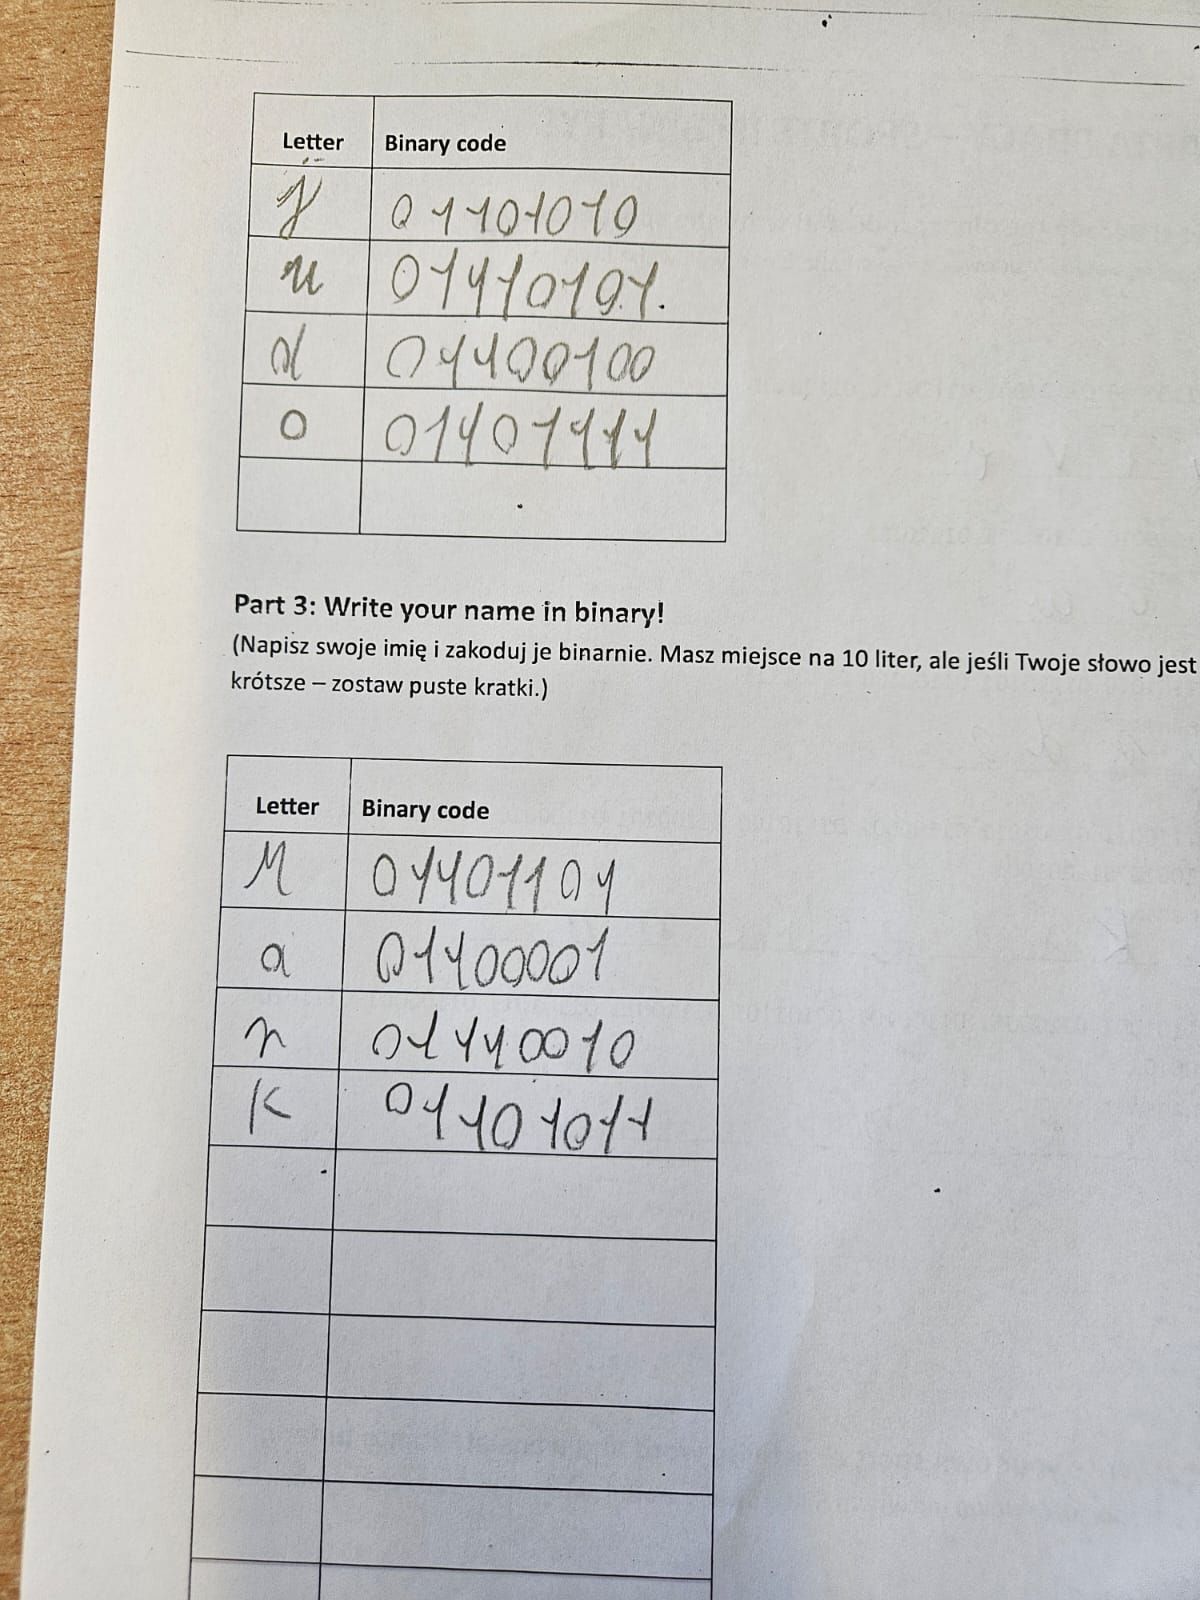 Letter Binary code
j 01101010
u 01110101.
d 01100100
o 01101111
Part 3: Write your name in binary!
(Napisz swoje imię i zakoduj je binarnie. Masz miejsce na 10 liter, ale jeśli Twoje słowo jest
krótsze – zostaw puste kratki.)
Letter Binary code
M 01101101
a 01100001
r 01110010
K 01101011